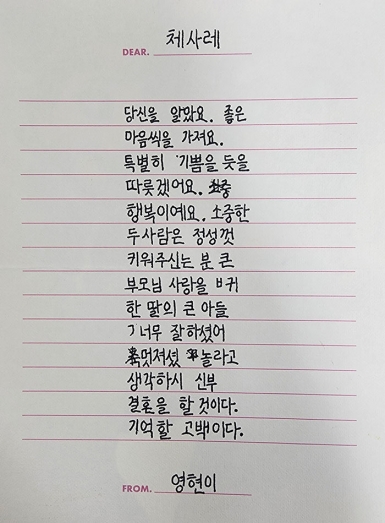 DEAR. 체사레
당신을 알았요. 좋은
마음씩을 가져요.
특별히 기쁨을 듯을
따릇겠어요.
행복이예요. 소중한
두사람은 정성껏
키워주신는 분 큰
부모님 사랑을 ㅂ귀
한 딸의 큰 아들
ㄱ너무 잘하셨어
멋져셨 놀라고
생각하시 신부
결혼을 할 것이다.
기억할 고백이다.
FROM. 영현이